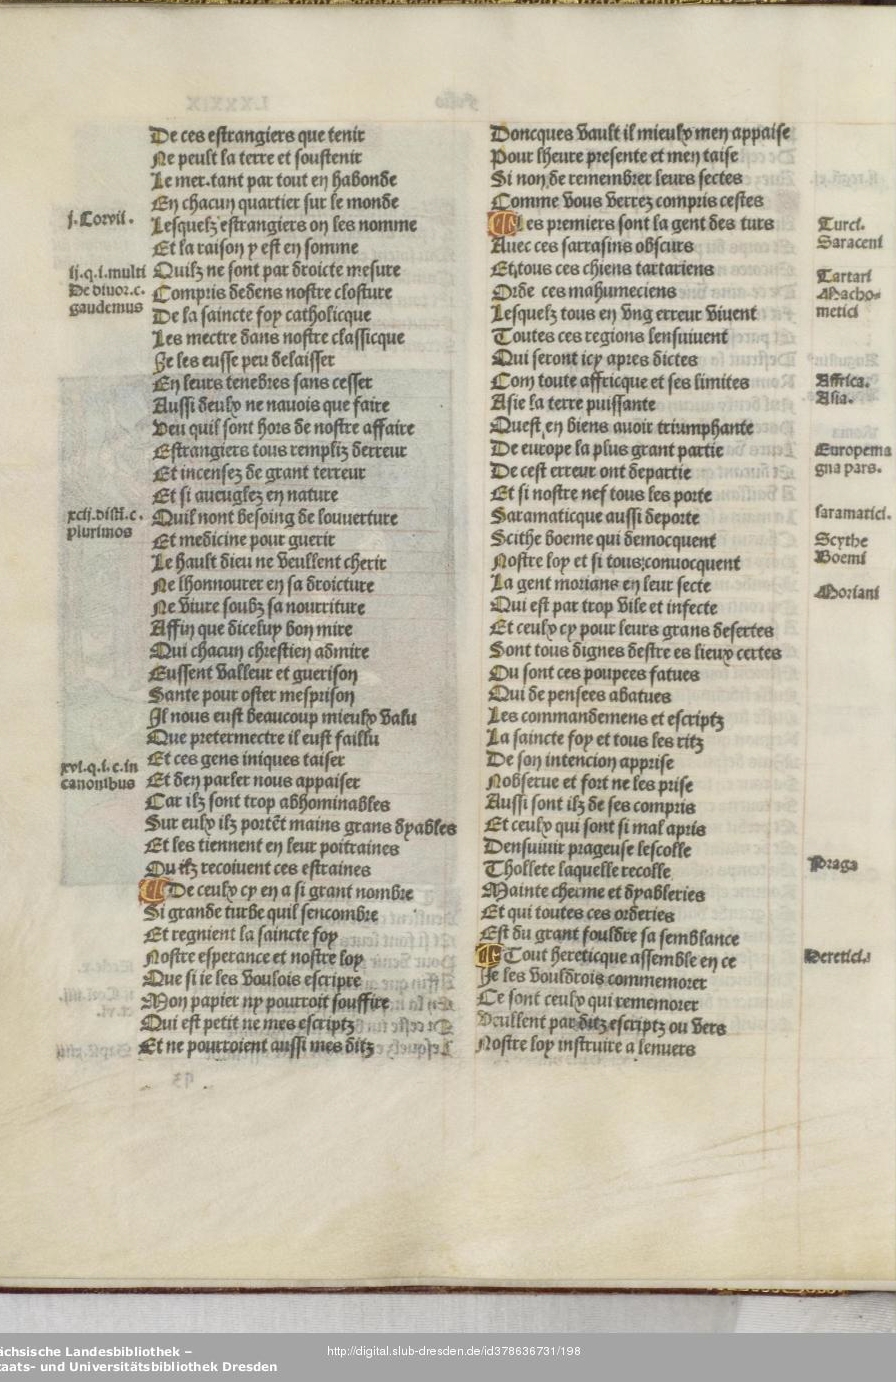 De ces estrangiers que tenir
Ne peult la terre et soustenir
Le mer.tant par tout en habonde
En chacun quartier sur le monde
j.Corvii.
Lesquelz estrangiers on les nomme
Et la raison y est en somme
ij.q.i.multi
De divor.c.
gaudemus
Quilz ne sont par droicte mesure
Compris dedens nostre closture
De la saincte foy catholicque
Les mectre dans nostre classicque
Je les eusse peu delaisser
En leurs tenebres sans cesser
Aussi deulx ne nauois que faire
Veu quil sont hors de nostre affaire
Estrangiers tous rempliz derreur
Et incensez de grant terreur
Et si aueuglez en nature
xcij.disti.c.
plurimos
Quil nont besoing de louuerture
Et medicine pour guerir
Le hault dieu ne veullent cherir
Ne lhonnourer en sa droicture
Ne viure soubz sa nourriture
Affin que diceluy bon mire
Qui chacun chrestien admire
Eussent valleur et guerison
Sante pour oster mesprison
Il nous eust beaucoup mieulx valu
Que pretermectre il eust faillu
xvi.q.i.c.in
canonibus
Et ces gens iniques taiser
Et den parler nous appaiser
Car ilz sont trop abhominables
Sur eulx ilz portēt mains grans dyables
Et les tiennent en leur poitraines
Ou ilz recoiuent ces estraines
De ceulx cy en a si grant nombre
Si grande turbe quil sencombre
Et regnient la saincte foy
Nostre esperance et nostre loy
Que si ie les voulois escripre
Mon papier ny pourroit souffire
Qui est petit ne mes escriptz
Et ne pourroient aussi mes ditz
Doncques vault il mieulx men appaise
Pour lheure presente et men taise
Si non de remembrer leurs sectes
Comme vous verrez compris cestes
Les premiers sont la gent des turs
Auec ces sarrasins obscurs
Et tous ces chiens tartariens
Orde ces mahumeciens
Lesquelz tous en vng erreur viuent
Toutes ces regions lensuiuent
Qui seront icy apres dictes
Com toute affricque et ses limites
Asie la terre puissante
Quest en biens auoir triumphante
De europe la plus grant partie
De cest erreur ont departie
Et si nostre nef tous les porte
Saramaticque aussi deporte
Scithe boeme qui democquent
Nostre loy et si tous conuocquent
La gent morians en leur secte
Qui est par trop vile et infecte
Et ceulx cy pour leurs grans desertes
Sont tous dignes destre es lieux certes
Ou sont ces poupees fatues
Qui de pensees abatues
Les commandemens et escriptz
La saincte foy et tous les ritz
De son intencion apprise
Nobserue et fort ne les prise
Aussi sont ilz de ses compris
Et ceulx qui sont si mal apris
Densuiuir prageuse lescolle
Thollete laquelle recolle
Mainte cherme et dyableries
Et qui toutes ces orderies
Est du grant fouldre sa semblance
Tout hereticque assemble en ce
Je les vouldrois commemorer
Ce sont ceulx qui rememorer
Veullent par ditz escriptz ou vers
Nostre loy instruire a lenuers
Turci.
Saraceni
Tartari
Macho=
metici
Affrica.
Asia.
Europema
gna pars.
saramatici.
Scythe
Boemi
Moriani
Praga
Heretici.
ächsische Landesbibliothek –
taats- und Universitätsbibliothek Dresden
http://digital.slub-dresden.de/id378636731/198